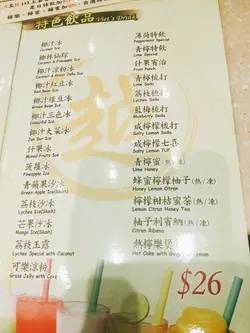 特色飲品 Viet's Drink
椰汁冰
Coconut Ice
椰林仙踪
Coconut & Pineapple Ice
椰汁涼粉冰
Coconut & Grass Jelly Ice
椰汁紅豆冰
Red Bean Ice
椰汁綠豆冰
Green Bean Ice
椰汁三色冰
Colourful Ice
椰汁大菜冰
Jam Dor Ice
什果冰
Mixed Fruits Ice
菠蘿冰
Pineapple Ice
青蘋果沙冰
Green Apple Ice(Slush)
荔枝沙冰
Lychee Ice(Slush)
芒果沙冰
Mango Ice(Slush)
荔枝玉露
Lychee Special with Coconut
可樂涼粉
Grass Jelly with Coke
薄荷特飲
Peppermint Special
青檸特飲
Lime Special
什果賓治
Fruit Punch
荔枝梳打
Lychee Soda
藍莓梳打
Blueberry Soda
咸檸檬梳打
Salty Lemon Soda
咸檸檬七喜
Salty Lemon 7UP
青檸蜜(熱/凍)
Lime Honey
蜂蜜檸檬柚子(熱/凍)
Honey Lemon Citron
檸檬柑桔蜜(熱/凍)
Lemon Citrus Honey Tea
柚子利賓納(熱/凍)
Citron Ribena
熱檸樂煲
Hot Coke with Lemon
$26